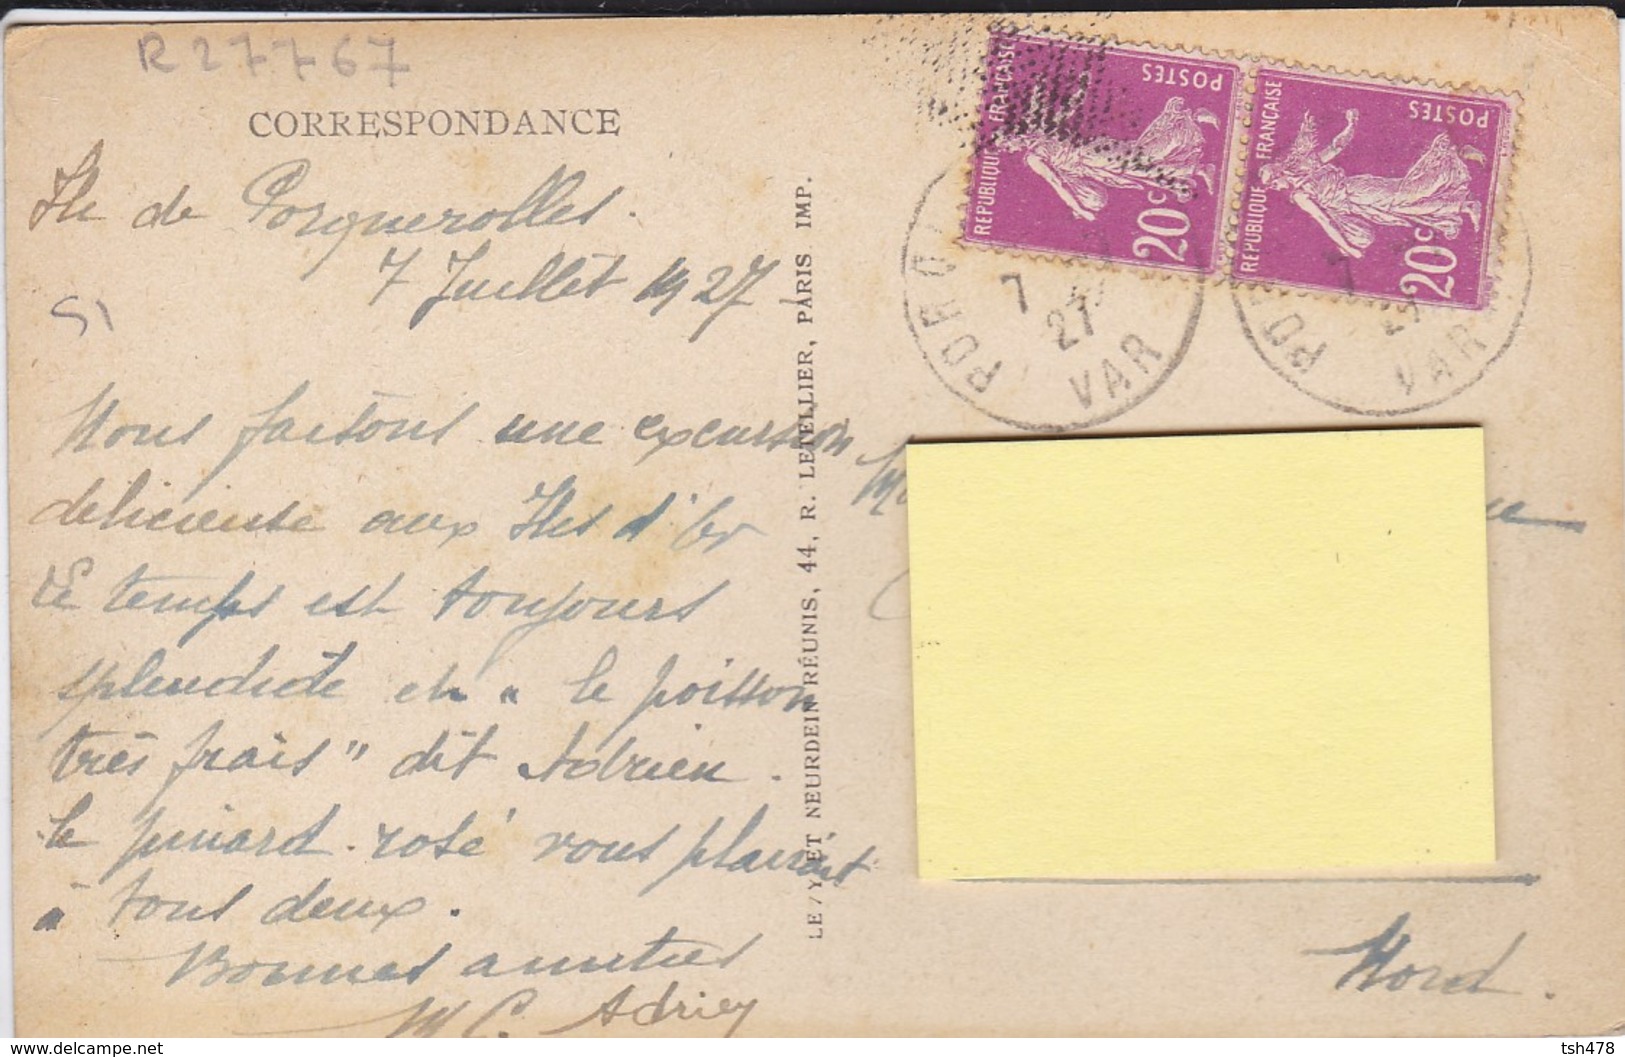 R 27767
CORRESPONDANCE
Ile de Porquerolles.
7 Juillet 1927
51
Nous faisons une excursion
délicieuse aux Iles d'Or
Le temps est toujours
splendide et " le poisson
très frais " dit Adrien.
le pinard rosé vous plairait
à tous deux.
Bonnes amitiés
M C. Adrien
LEVY ET NEURDEIN RÉUNIS, 44, R. LETELLIER, PARIS IMP.
REPUBLIQUE FRANÇAISE
POSTES
20c
REPUBLIQUE FRANÇAISE
POSTES
20c
7
27
VAR
7
27
VAR
Nord.
www.delcampe.net
tsh478